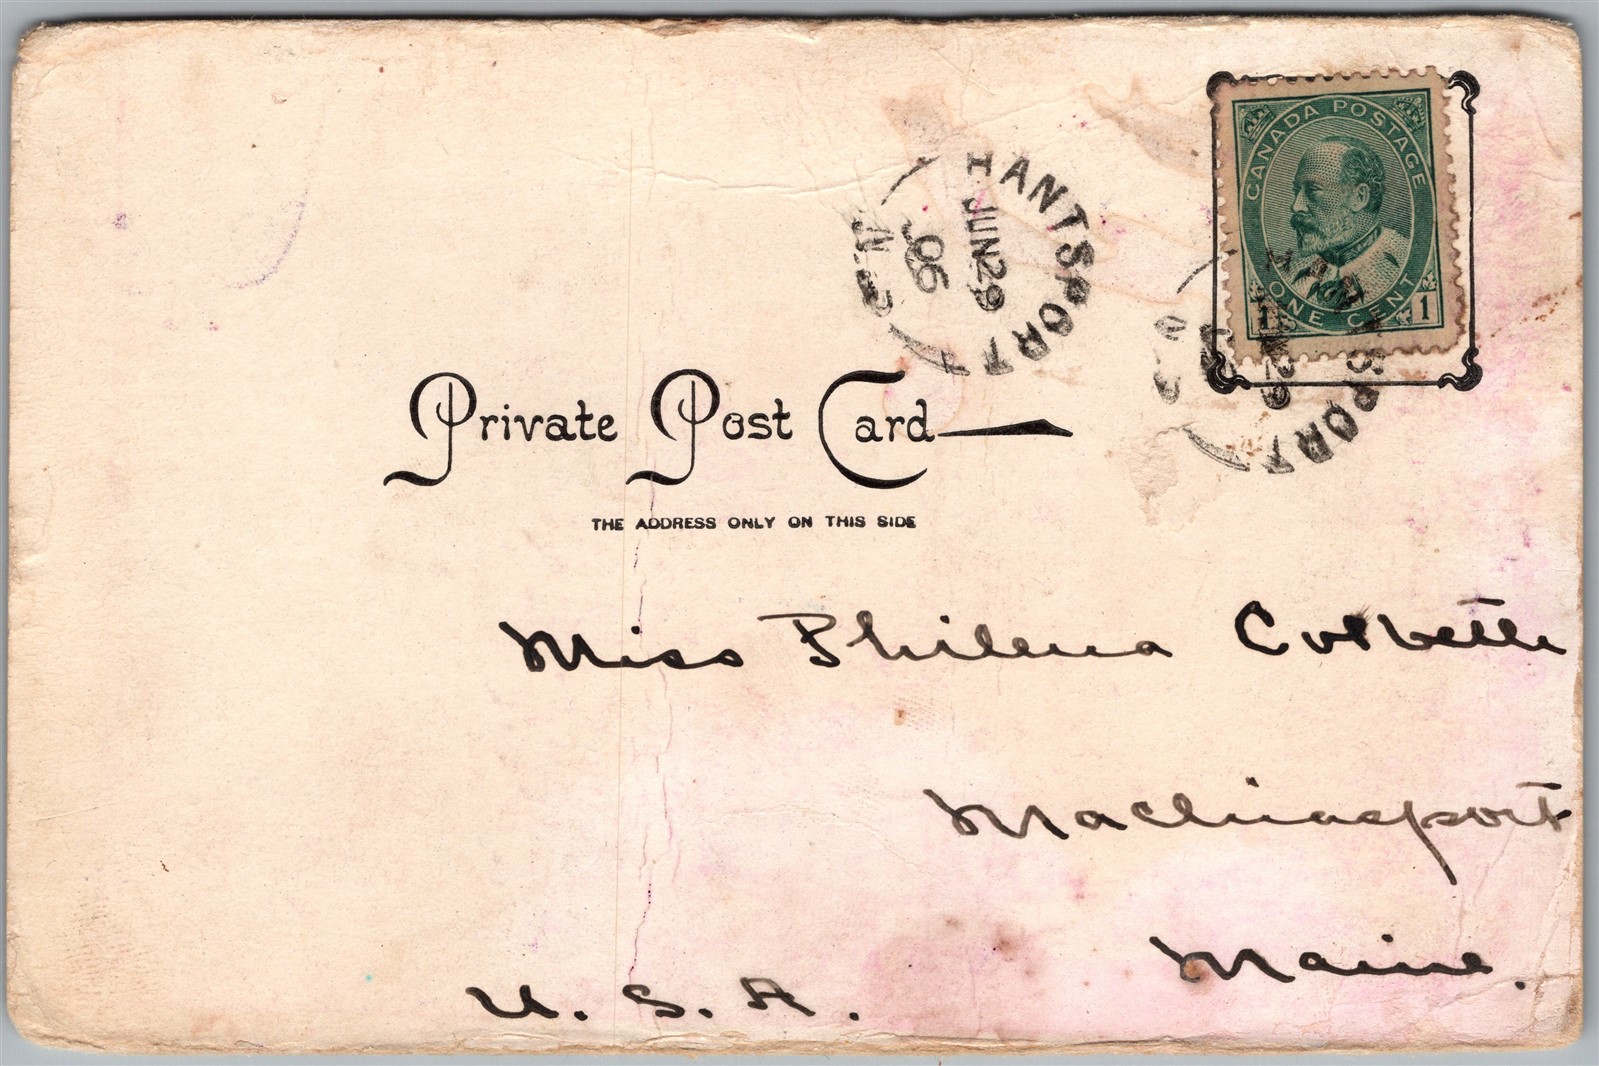 CANADA POSTAGE
ONE CENT
1 1
HANTSPORT
JUN 29
05
N.S
Private Post Card
THE ADDRESS ONLY ON THIS SIDE
Miss Philena Corbett
Machiasport
Maine.
U. S. A.